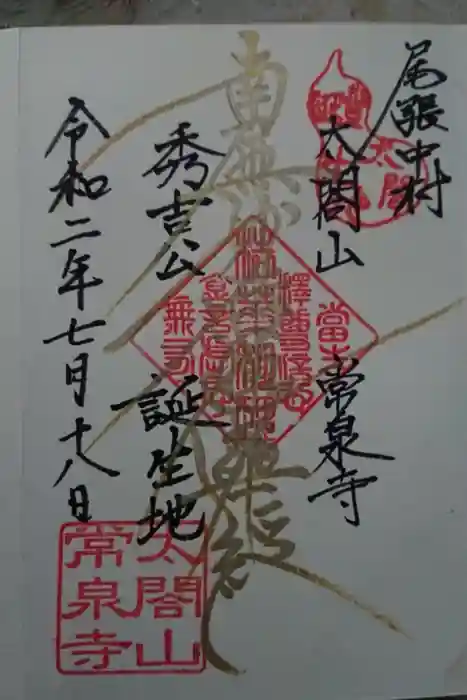 尾張中村
太閤山 常泉寺
南無妙法蓮華経
秀吉公 誕生地
令和二年七月十八日
太閤山
常泉寺